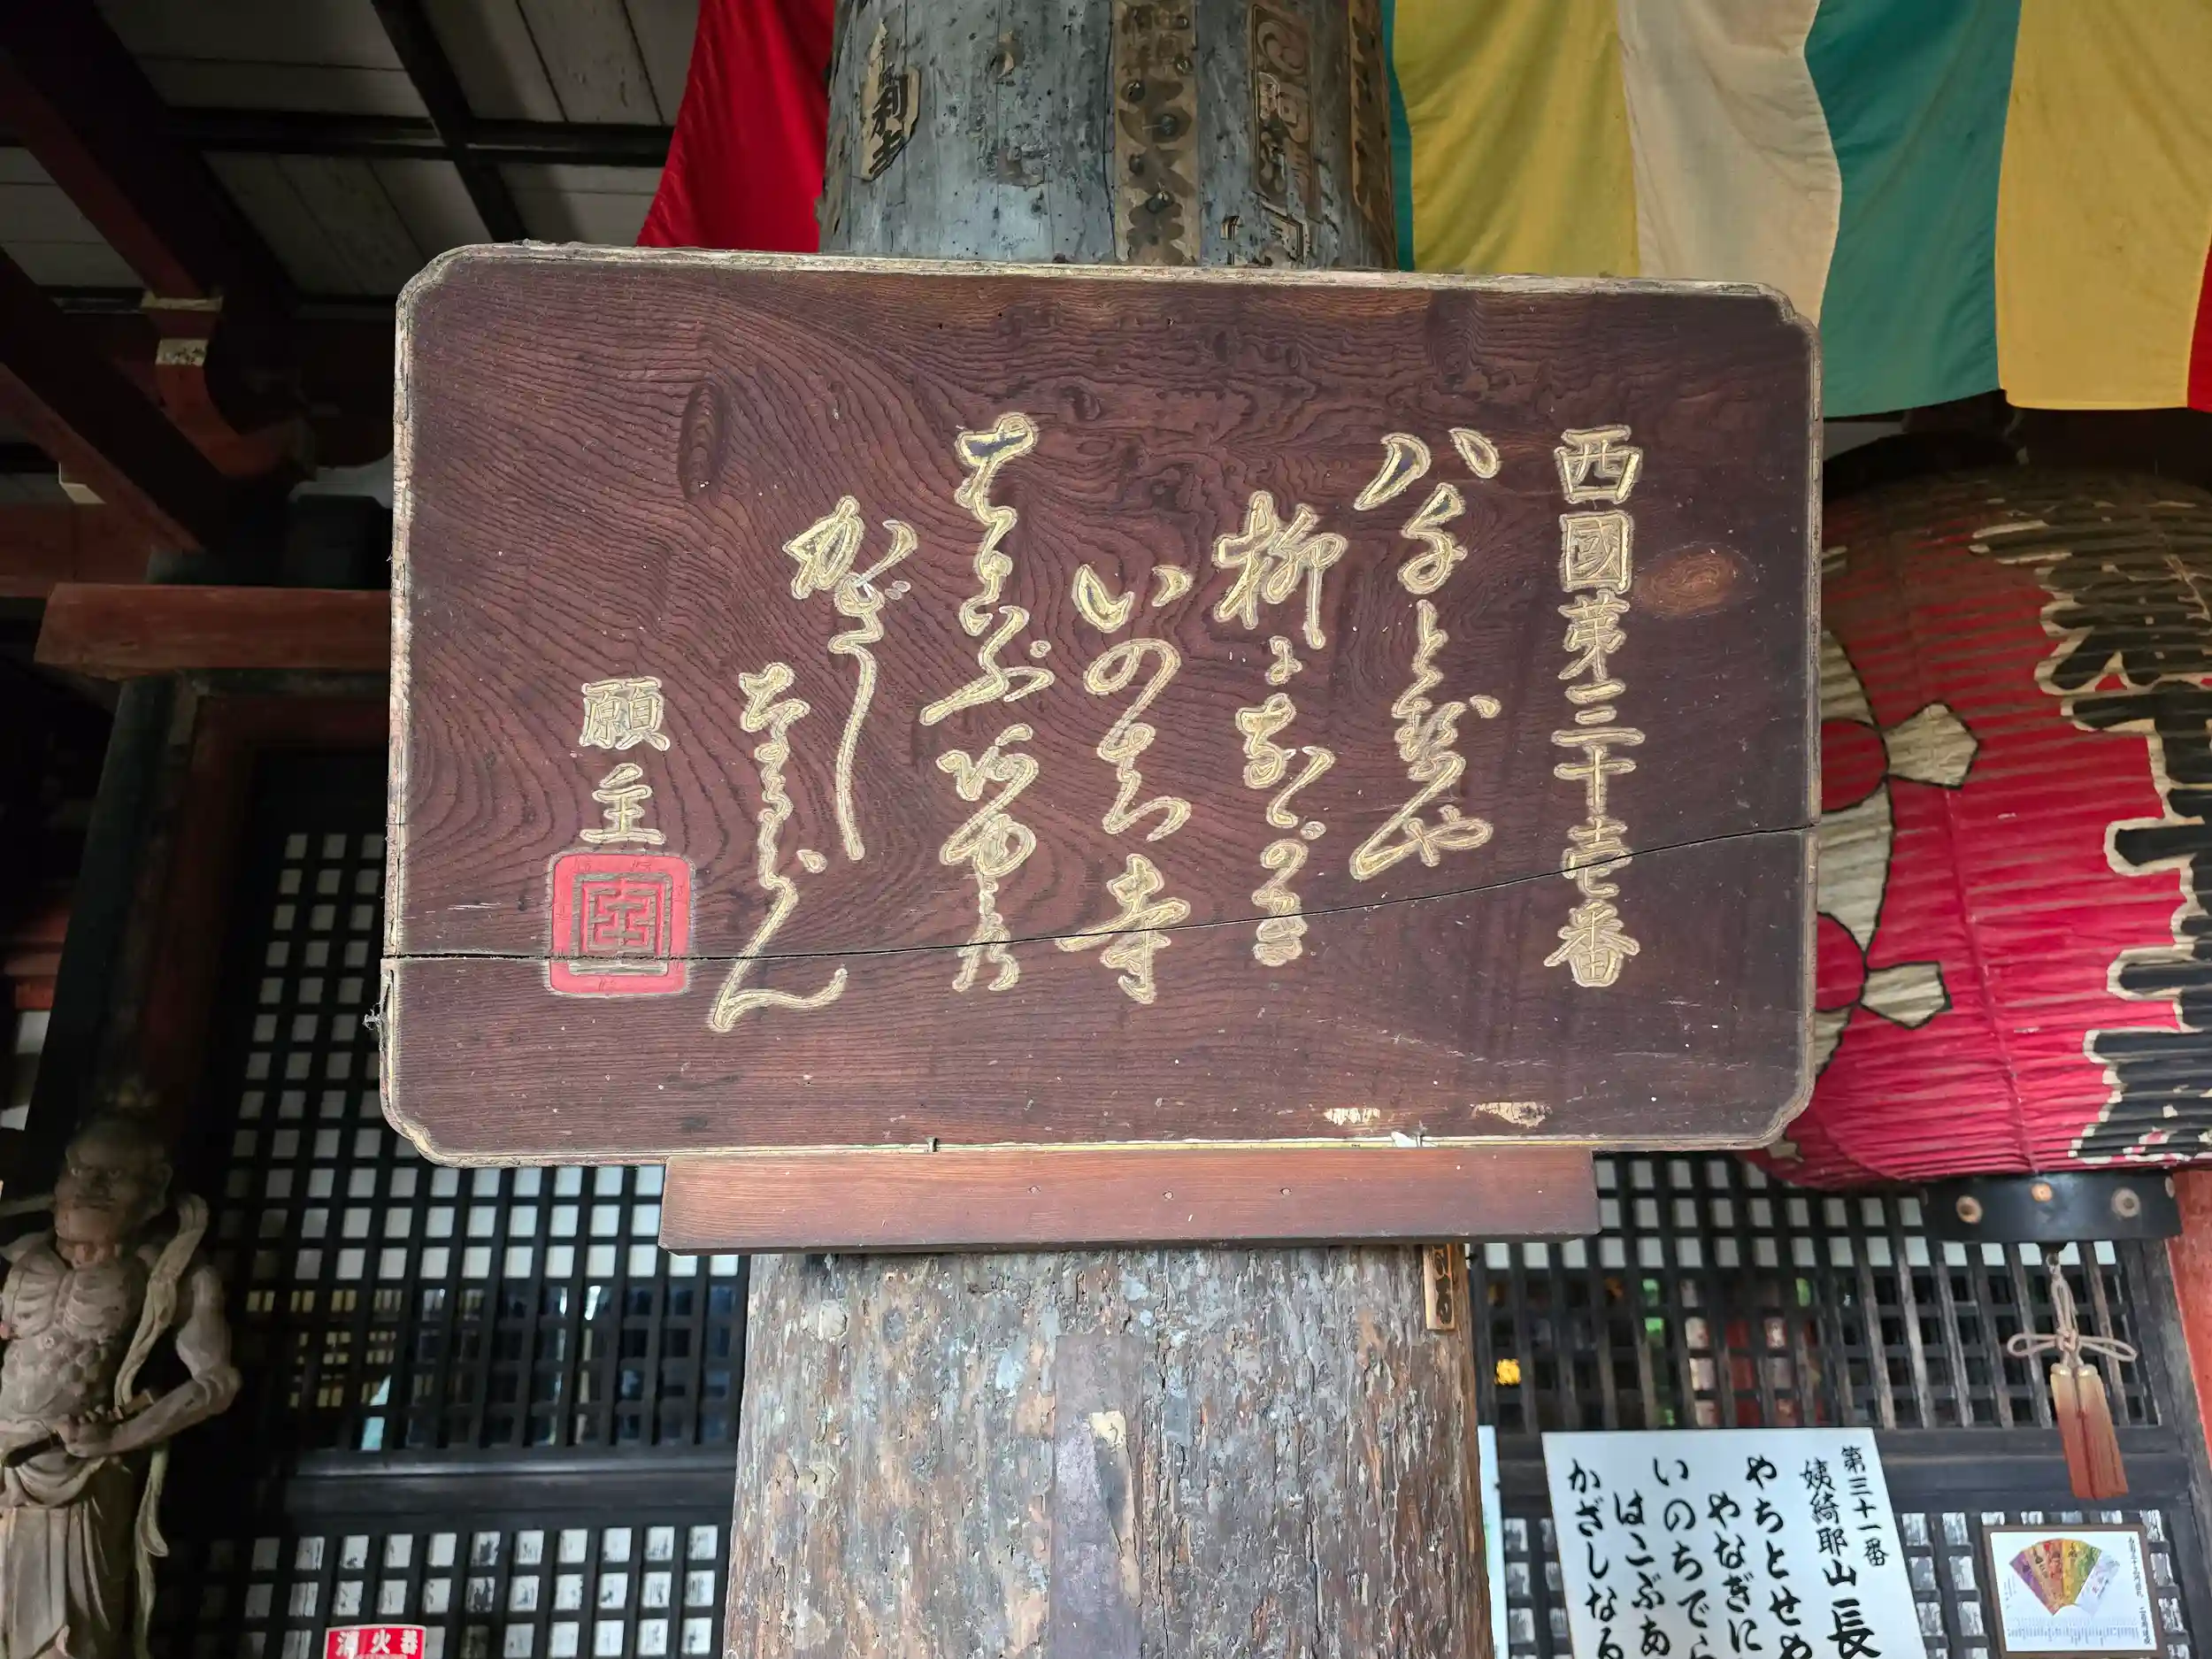 西國第三十壱番
八千とせや
柳にながき
いのち寺
はこぶ阿ゆみの
かざし
なるらん
願主
第三十一番
姨綺耶山 長
やちとせや
やなぎに
いのちでら
はこぶあ
かざしなる
消火器